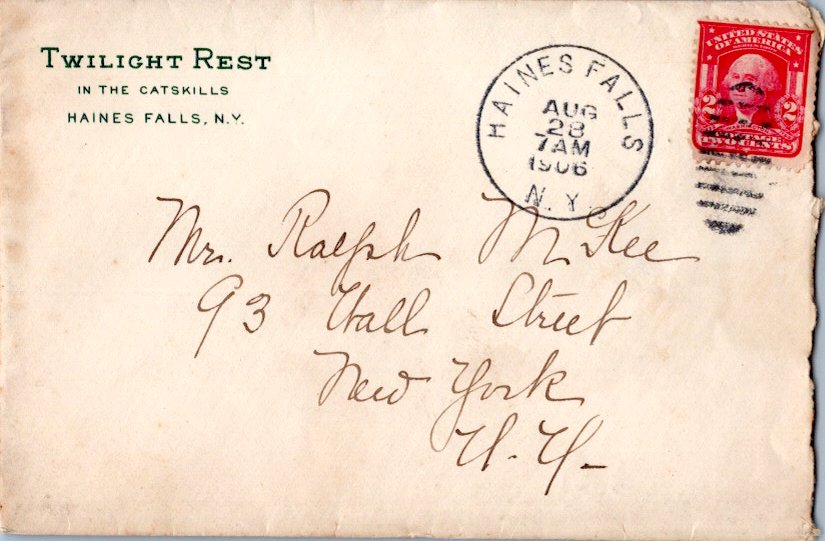 TWILIGHT REST
IN THE CATSKILLS
HAINES FALLS, N.Y.
HAINES FALLS
AUG
28
7AM
1906
N.Y.
UNITED STATES
OF AMERICA
2 2
TWO CENTS
Mr. Ralph McKee
93 Wall Street
New York
N.Y.